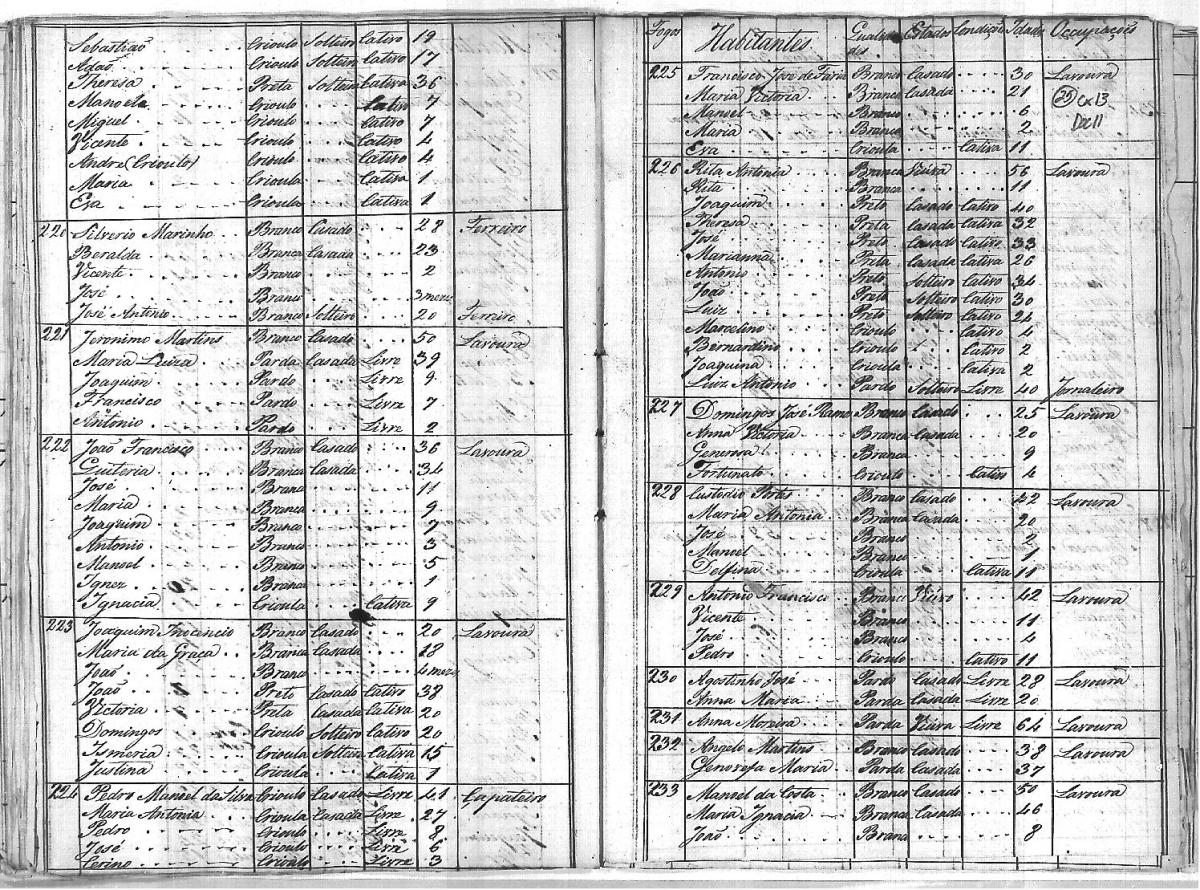 Sebastiaõ Crioulo Solteiro Cativo 19
Adaõ Crioulo Solteiro Cativo 17
Theresa Preta Solteira Cativa 36
Manoela Crioula Cativa 7
Miguel Crioulo Cativo 7
Vicente Crioulo Cativo 4
Andre (Crioulo) Crioulo Cativo 4
Maria Crioula Cativa 1
Eva Crioula Cativa 1
220 Silverio Marinho Branco Casado 28 Ferreiro
Beralda Branca Casada 23
Vicente Branco 2
José Branco 3 mezes
José Antonio Branco Solteiro 20 Ferreiro
221 Jeronimo Martins Branco Casado 50 Lavoura
Maria Luiza Parda Casada Livre 39
Joaquim Pardo Livre 9
Francisco Pardo Livre 7
Antonio Pardo Livre 2
222 João Francisco Branco Casado 36 Lavoura
Quiteria Branca Casada 34
José Branco 11
Maria Branca 9
Joaquim Branco 7
Antonio Branco 3
Manoel Branco 5
Ignez Branca 1
Ignacia Crioula Cativa 9
223 Joaquim Inocencio Branco Casado 20 Lavoura
Maria da Graça Branca Casada 18
João Branco 4 mezes
João Preto Casado Cativo 38
Victoria Preta Casada Cativa 20
Domingos Crioulo Solteiro Cativo 20
Ismeria Crioula Solteira Cativa 15
Justina Crioula Cativa 1
224 Pedro Manoel da Silva Crioulo Casado Livre 41 Çapateiro
Maria Antonia Crioula Casada Livre 27
Pedro Crioulo Livre 8
José Crioulo Livre 6
Cerino Crioulo Livre 3
Fogos Habitantes Qualidades Estados Condiçoẽs Idades Occupaçoẽs
225 Francisco Jose de Faria Branco Casado 30 Lavoura
Maria Victoria Branca Casada 21
25 Cx13
Manoel Branco 6
Doc11
Maria Branca 2
Eva Crioula Cativa 11
226 Rita Antonia Branca Viuva 56 Lavoura
Rita Branca 11
Joaquim Preto Casado Cativo 40
Theresa Preta Casada Cativa 32
José Preto Casado Cativo 33
Marianna Preta Casada Cativa 26
Antonio Preto Solteiro Cativo 34
João Preto Solteiro Cativo 30
Luiz Preto Solteiro Cativo 24
Marcelino Crioulo Cativo 4
Bernardino Crioulo Cativo 2
Joaquina Crioula Cativa 2
Luiz Antonio Pardo Solteiro Livre 40 Jornaleiro
227 Domingos José Ramo Branco Casado 25 Lavoura
Anna Victoria Branca Casada 20
Generosa Branca 9
Fortunato Crioulo Cativo 4
228 Custodio Branco Casado 42 Lavoura
Maria Antonia Branca Casada 20
José Branco 2
Manoel Branco 1
Delfina Crioula Cativa 11
229 Antonio Francisco Branco Viuvo 42 Lavoura
Vicente Branco 11
José Branco 4
Pedro Crioulo Cativo 11
230 Agostinho José Pardo Casado Livre 28 Lavoura
Anna Maria Parda Casada Livre 20
231 Anna Moreira Parda Viuva Livre 64 Lavoura
232 Angelo Martins Branco Casado 38 Lavoura
Genovefa Maria Parda Casada 37
233 Manoel da Costa Branco Casado 50 Lavoura
Maria Ignacia Branca Casada 46
João Branco 8